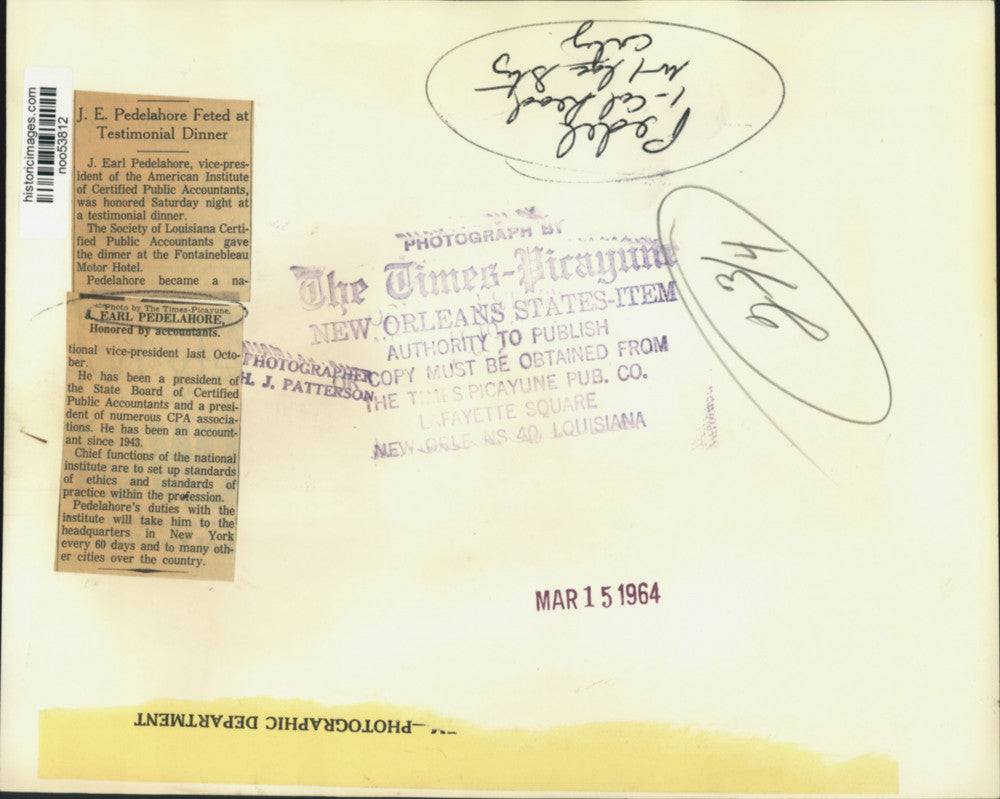 historicimages.com
noo53812
J. E. Pedelahore Feted at
Testimonial Dinner
J. Earl Pedelahore, vice-pres-
ident of the American Institute
of Certified Public Accountants,
was honored Saturday night at
a testimonial dinner.
The Society of Louisiana Certi-
fied Public Accountants gave
the dinner at the Fontainebleau
Motor Hotel.
Pedelahore became a na-
Photo by The Times-Picayune.
J. EARL PEDELAHORE,
Honored by accountants.
tional vice-president last Octo-
ber.
He has been a president of
the State Board of Certified
Public Accountants and a presi-
dent of numerous CPA associa-
tions. He has been an account-
ant since 1943.
Chief functions of the national
institute are to set up standards
of ethics and standards of
practice within the profession.
Pedelahore's duties with the
institute will take him to the
headquarters in New York
every 60 days and to many oth-
er cities over the country.
PHOTOGRAPH BY
The Times-Picayune
NEW ORLEANS STATES-ITEM
AUTHORITY TO PUBLISH
COPY MUST BE OBTAINED FROM
THE TIMES PICAYUNE PUB. CO.
LAFAYETTE SQUARE
NEW ORLEANS 40, LOUISIANA
PHOTOGRAPHER
H. J. PATTERSON
Pedel
1-Col head
MAR 15 1964
PHOTOGRAPHIC DEPARTMENT